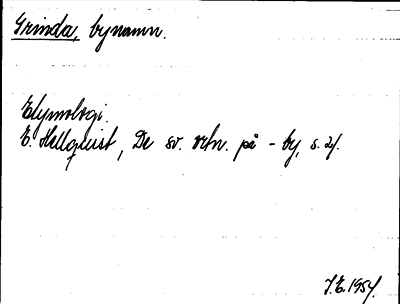 Grinda, bynamn.
Etymologi.
E. Hellquist, De sv. ortn. på -by, s. 21.
J.E. 1954.